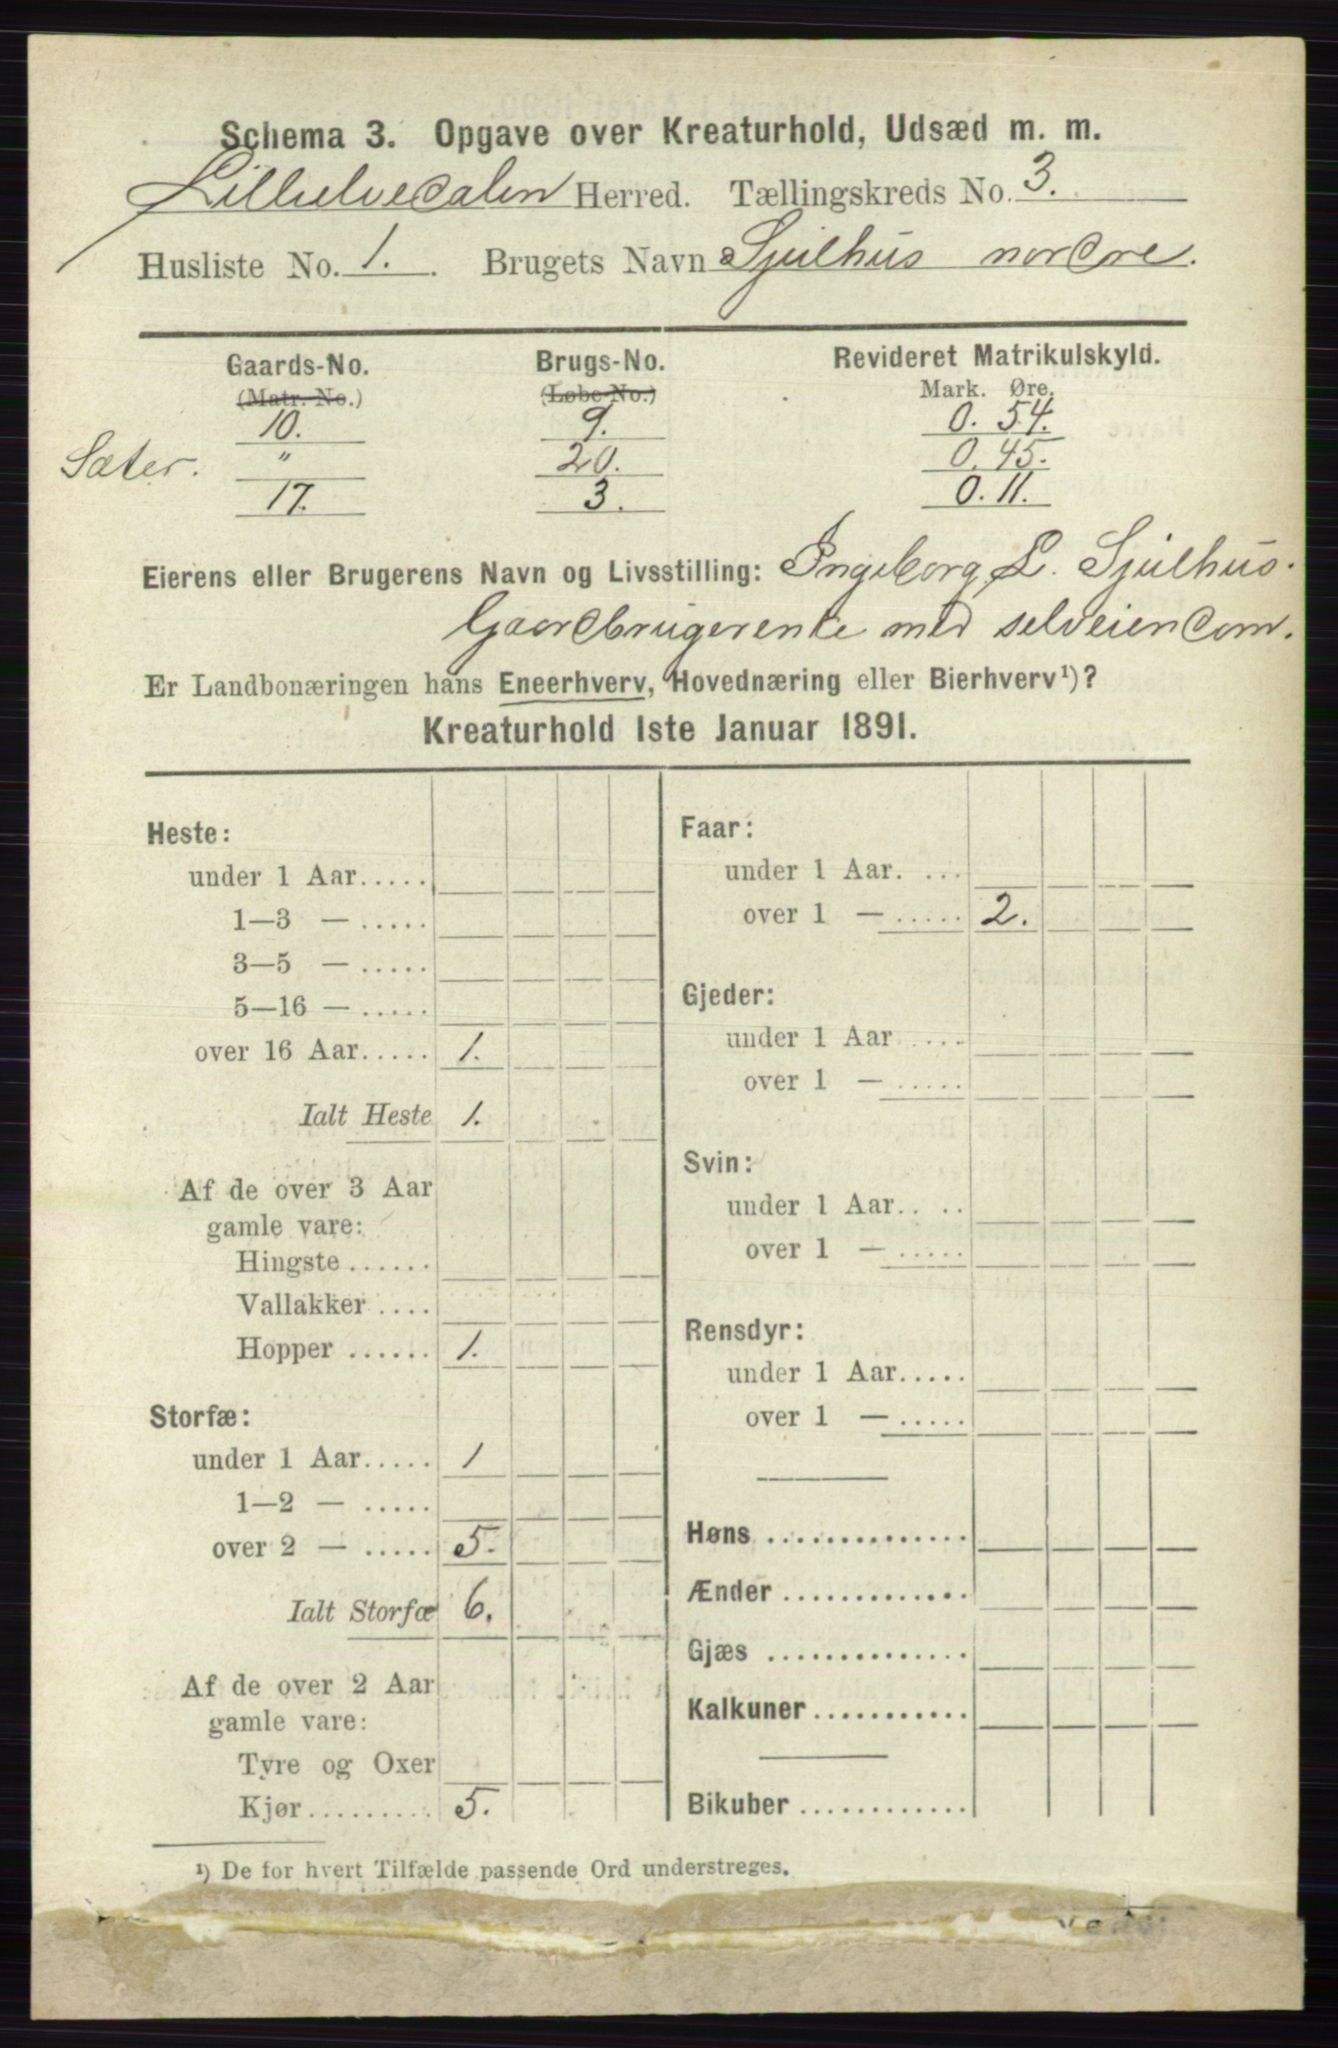 Schema 3. Opgave over Kreaturhold, Udsæd m. m.
Lilleelvedalen Herred. Tællingskreds No. 3.
Husliste No. 1. Brugets Navn Sjulhus nordre.
Gaards-No. Brugs-No. Revideret Matrikulskyld.
(Matr.-No.) (Løbe-No.) Mark. Øre.
10. 9. 0. 54.
Sæter. " 20. 0. 45.
17. 3. 0. 11.
Eierens eller Brugerens Navn og Livsstilling: Ingeborg L. Sjulhus.
Gaardbrugerenke med selveiendom.
Er Landbonæringen hans Eneerhverv, Hovednæring eller Bierhverv¹)?
Kreaturhold 1ste Januar 1891.
Heste:
under 1 Aar.....
1—3 — .....
3—5 — .....
5—16 — .....
over 16 Aar..... 1.
Ialt Heste 1.
Af de over 3 Aar
gamle vare:
Hingste......
Vallakker ....
Hopper ...... 1.
Storfæ:
under 1 Aar..... 1
1—2 — .....
over 2 — ..... 5.
Ialt Storfæ 6.
Af de over 2 Aar
gamle vare:
Tyre og Oxer
Kjør......... 5.
Faar:
under 1 Aar. ...
over 1 — ..... 2.
Gjeder:
under 1 Aar .....
over 1 — .....
Svin:
under 1 Aar.. ..
over 1 — .....
Rensdyr:
under 1 Aar.....
over 1 — .....
Høns ..............
Ænder .............
Gjæs ..............
Kalkuner ...........
Bikuber ............
¹) De for hvert Tilfælde passende Ord understreges.